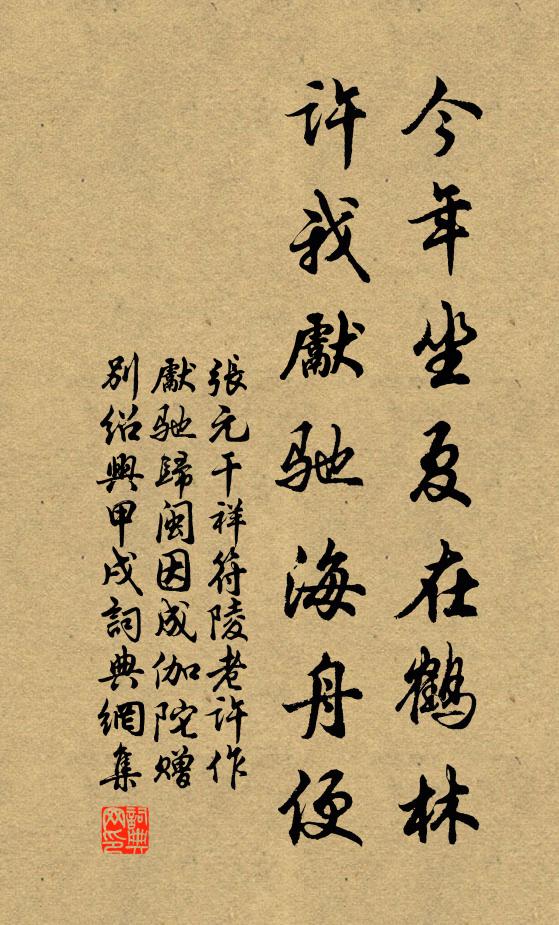 今年坐夏在鶴林
許我獻馳海舟便
張元干祥符陵老許作
獻馳歸閩因成伽陀贈
別紹興甲戌詞典網集
詞典网印